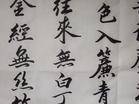 色入簾青
往來無白丁
金經無絲竹